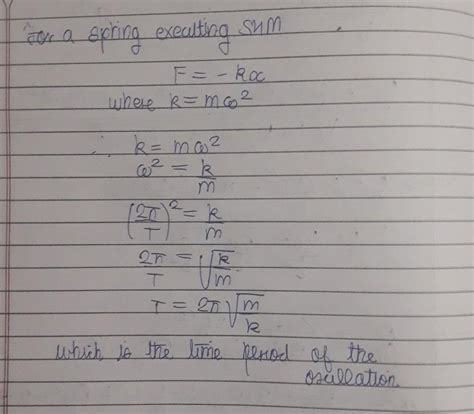 For a spring execulting SHM
F = - kx
where k = mω²
∴ k = mω²
ω² = k/m
(2π/T)² = k/m
2π/T = √(k/m)
T = 2π√(m/k)
which is the time period of the
oscillation.